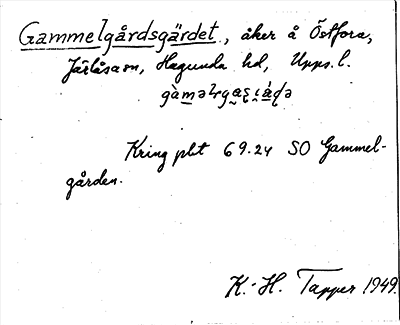 Gammelgårdsgärdet, åker å Östfora,
Järlåsa sn, Hagunda hd, Upps. l.
Kring pkt 69.24 SO Gammel-
gården.
K.-H. Tapper 1949.